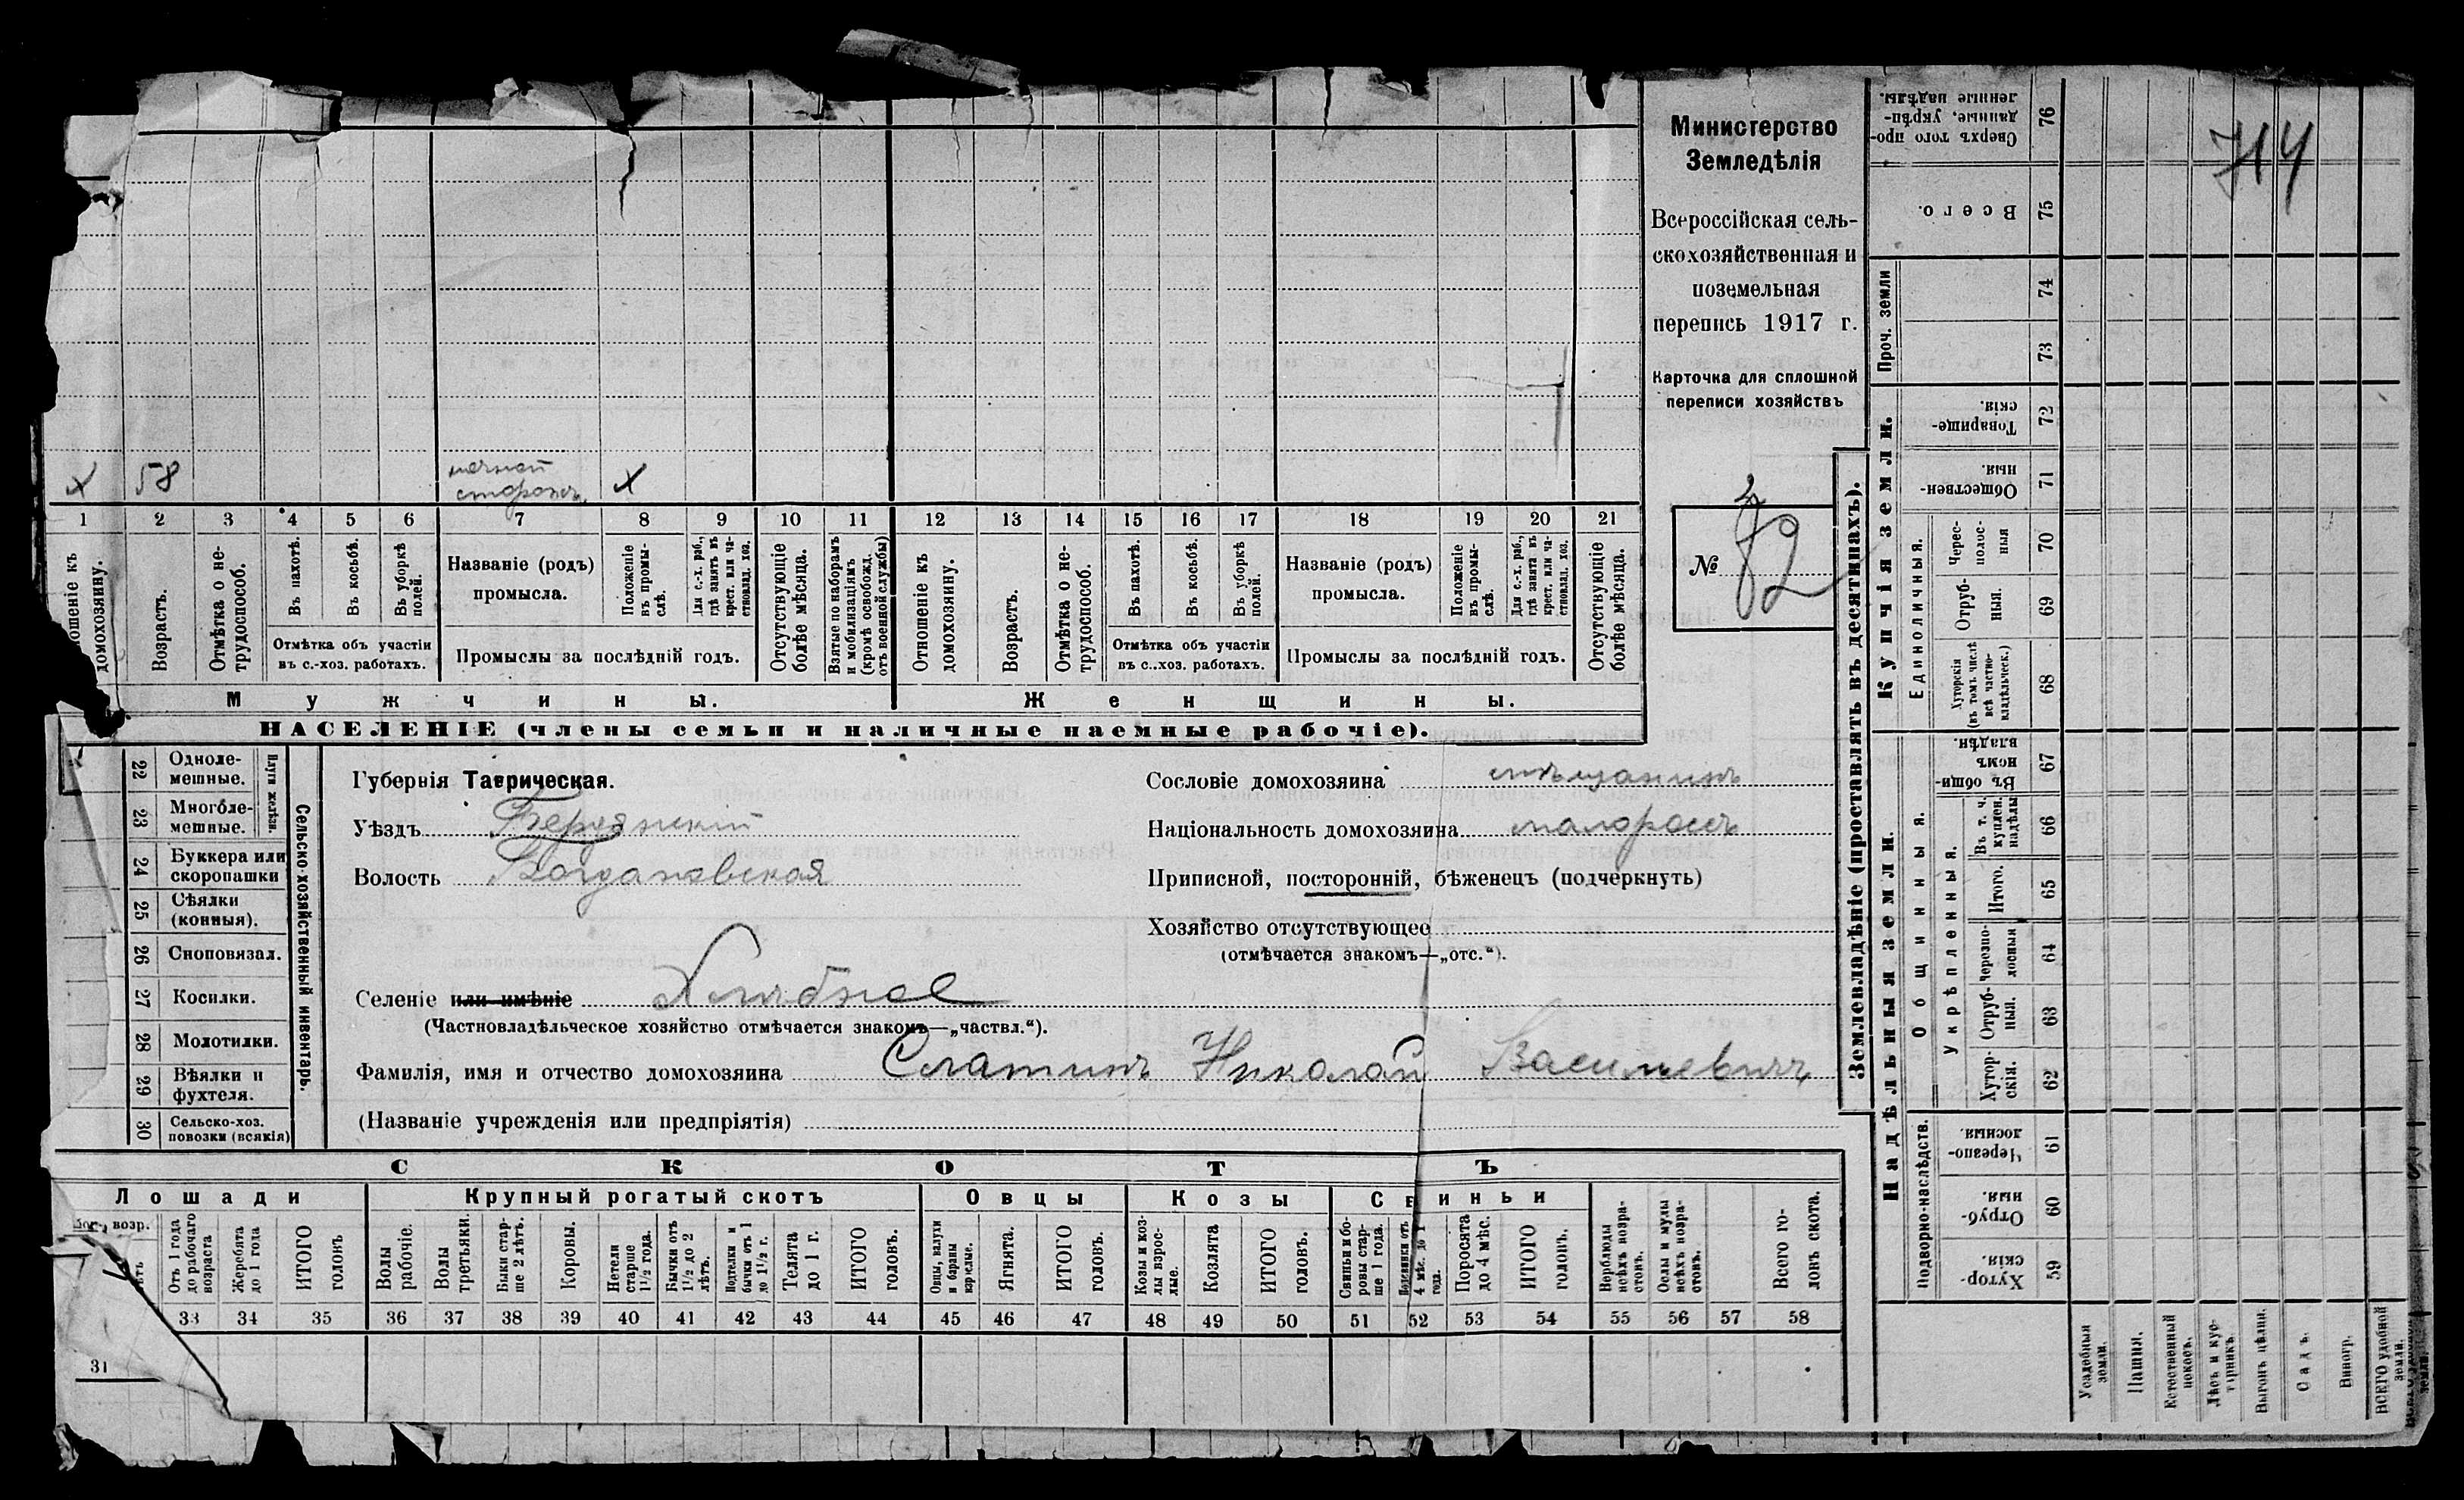 Министерство
Земледѣлія
Всероссійская сель-
скохозяйственная и
поземельная
перепись 1917 г.
Карточка для сплошной
переписи хозяйствъ
№ 82
714
х 58 ночной х
сторожъ
1 2 3 4 5 6 7 8 9 10 11 12 13 14 15 16 17 18 19 20 21
ношеніе къ
домохозяину.
Возрастъ.
Отмѣтка о не-
трудоспособ.
Въ пахотѣ.
Въ косьбѣ.
Въ уборкѣ
полей.
Отмѣтка объ участіи
въ с.-хоз. работахъ.
Названіе (родъ)
промысла.
Положеніе
въ промы-
слѣ.
Для с.-х. раб.,
гдѣ занятъ въ
крест. или ча-
стновлад. хоз.
Промыслы за послѣдній годъ.
Отсутствующіе
болѣе мѣсяца.
Взятые по наборамъ
и мобилизаціямъ
(кромѣ освобожд.
отъ военной службы)
Отношеніе къ
домохозяину.
Возрастъ.
Отмѣтка о не-
трудоспособ.
Въ пахотѣ.
Въ косьбѣ.
Въ уборкѣ
полей.
Отмѣтка объ участіи
въ с.-хоз. работахъ.
Названіе (родъ)
промысла.
Положеніе
въ промы-
слѣ.
Для с.-х. раб.,
гдѣ занята въ
крест. или ча-
стновлад. хоз.
Промыслы за послѣдній годъ.
Отсутствующіе
болѣе мѣсяца.
Мужчины.
Женщины.
НАСЕЛЕНІЕ (члены семьи и наличные наемные рабочіе).
22 Одноле-
мешные.
23 Многоле-
мешные.
Плуги желѣзн.
24 Буккера или
скоропашки
25 Сѣялки
(конныя).
26 Сноповязал.
27 Косилки.
28 Молотилки.
29 Вѣялки и
фухтеля.
30 Сельско-хоз.
повозки (всякія)
Сельско-хозяйственный инвентарь.
Губернія Таврическая.
Уѣздъ Бердянскій
Волость Богдановская
Сословіе домохозяина мѣщанинъ
Національность домохозяина малороссъ
Приписной, посторонній, бѣженецъ (подчеркнуть)
Хозяйство отсутствующее
(отмѣчается знакомъ—„отс.“).
Селеніе или имѣніе Хлѣбное
(Частновладѣльческое хозяйство отмѣчается знакомъ—„частвл.“).
Фамилія, имя и отчество домохозяина Слатинъ Николай Васильевичъ
(Названіе учрежденія или предпріятія)
СКОТЪ
Лошади
Крупный рогатый скотъ
Овцы
Козы
Свиньи
возр.
Отъ 1 года
до рабочаго
возраста
Жеребята
до 1 года
ИТОГО
головъ
Волы
рабочіе.
Волы
третьяки.
Быки стар-
ше 2 лѣтъ.
Коровы.
Нетели
старше
1½ года.
Бычки отъ
1½ до 2
лѣтъ.
Подтелки и
бычки отъ 1
до 1½ г.
Телята
до 1 г.
ИТОГО
головъ.
Овцы, валухи
и бараны
взрослые.
Ягнята.
ИТОГО
головъ.
Козы и коз-
лы взрос-
лые.
Козлята
ИТОГО
головъ.
Свиньи и бо-
ровы стар-
ше 1 года.
Подсвинки отъ
4 мѣс. до 1
года.
Поросята
до 4 мѣс.
ИТОГО
головъ.
Верблюды
всѣхъ возра-
стовъ.
Ослы и мулы
всѣхъ возра-
стовъ.
Всего го-
ловъ скота.
33 34 35 36 37 38 39 40 41 42 43 44 45 46 47 48 49 50 51 52 53 54 55 56 57 58
31
Землевладѣніе (проставлять въ десятинахъ).
Сверхъ того про-
данные, укрѣп-
ленные надѣлы. 76
Всего. 75
Проч. земли 74
73
Купчія земли.
Товарище-
скія. 72
Обществен-
ныя. 71
Единоличныя.
Черес-
полос-
ныя 70
Отруб-
ныя. 69
Хуторскія
(въ томъ числѣ
всѣ частно-
владѣльческ.) 68
Надѣльныя земли.
Общинныя.
Въ общин-
номъ
владѣн. 67
Укрѣпленныя.
Въ т. ч.
куплен.
надѣлы 66
Итого. 65
Черезпо-
лосныя 64
Отруб-
ныя. 63
Хутор-
скія. 62
Подворно-наслѣдств.
Черезпо-
лосныя. 61
Отруб-
ныя. 60
Хутор-
скія. 59
Усадебныя
земли.
Пашня.
Естественный
покосъ.
Лѣсъ и кус-
тарникъ.
Выгонъ цѣлин.
Садъ.
Виногр.
ВСЕГО удобной
земли.